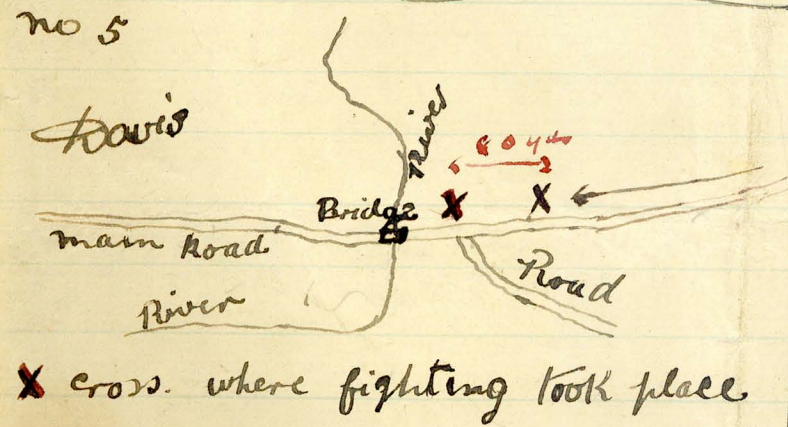 no 5
Davis
River
Bridge
X X
main Road
Road
River
X cross. where fighting took place